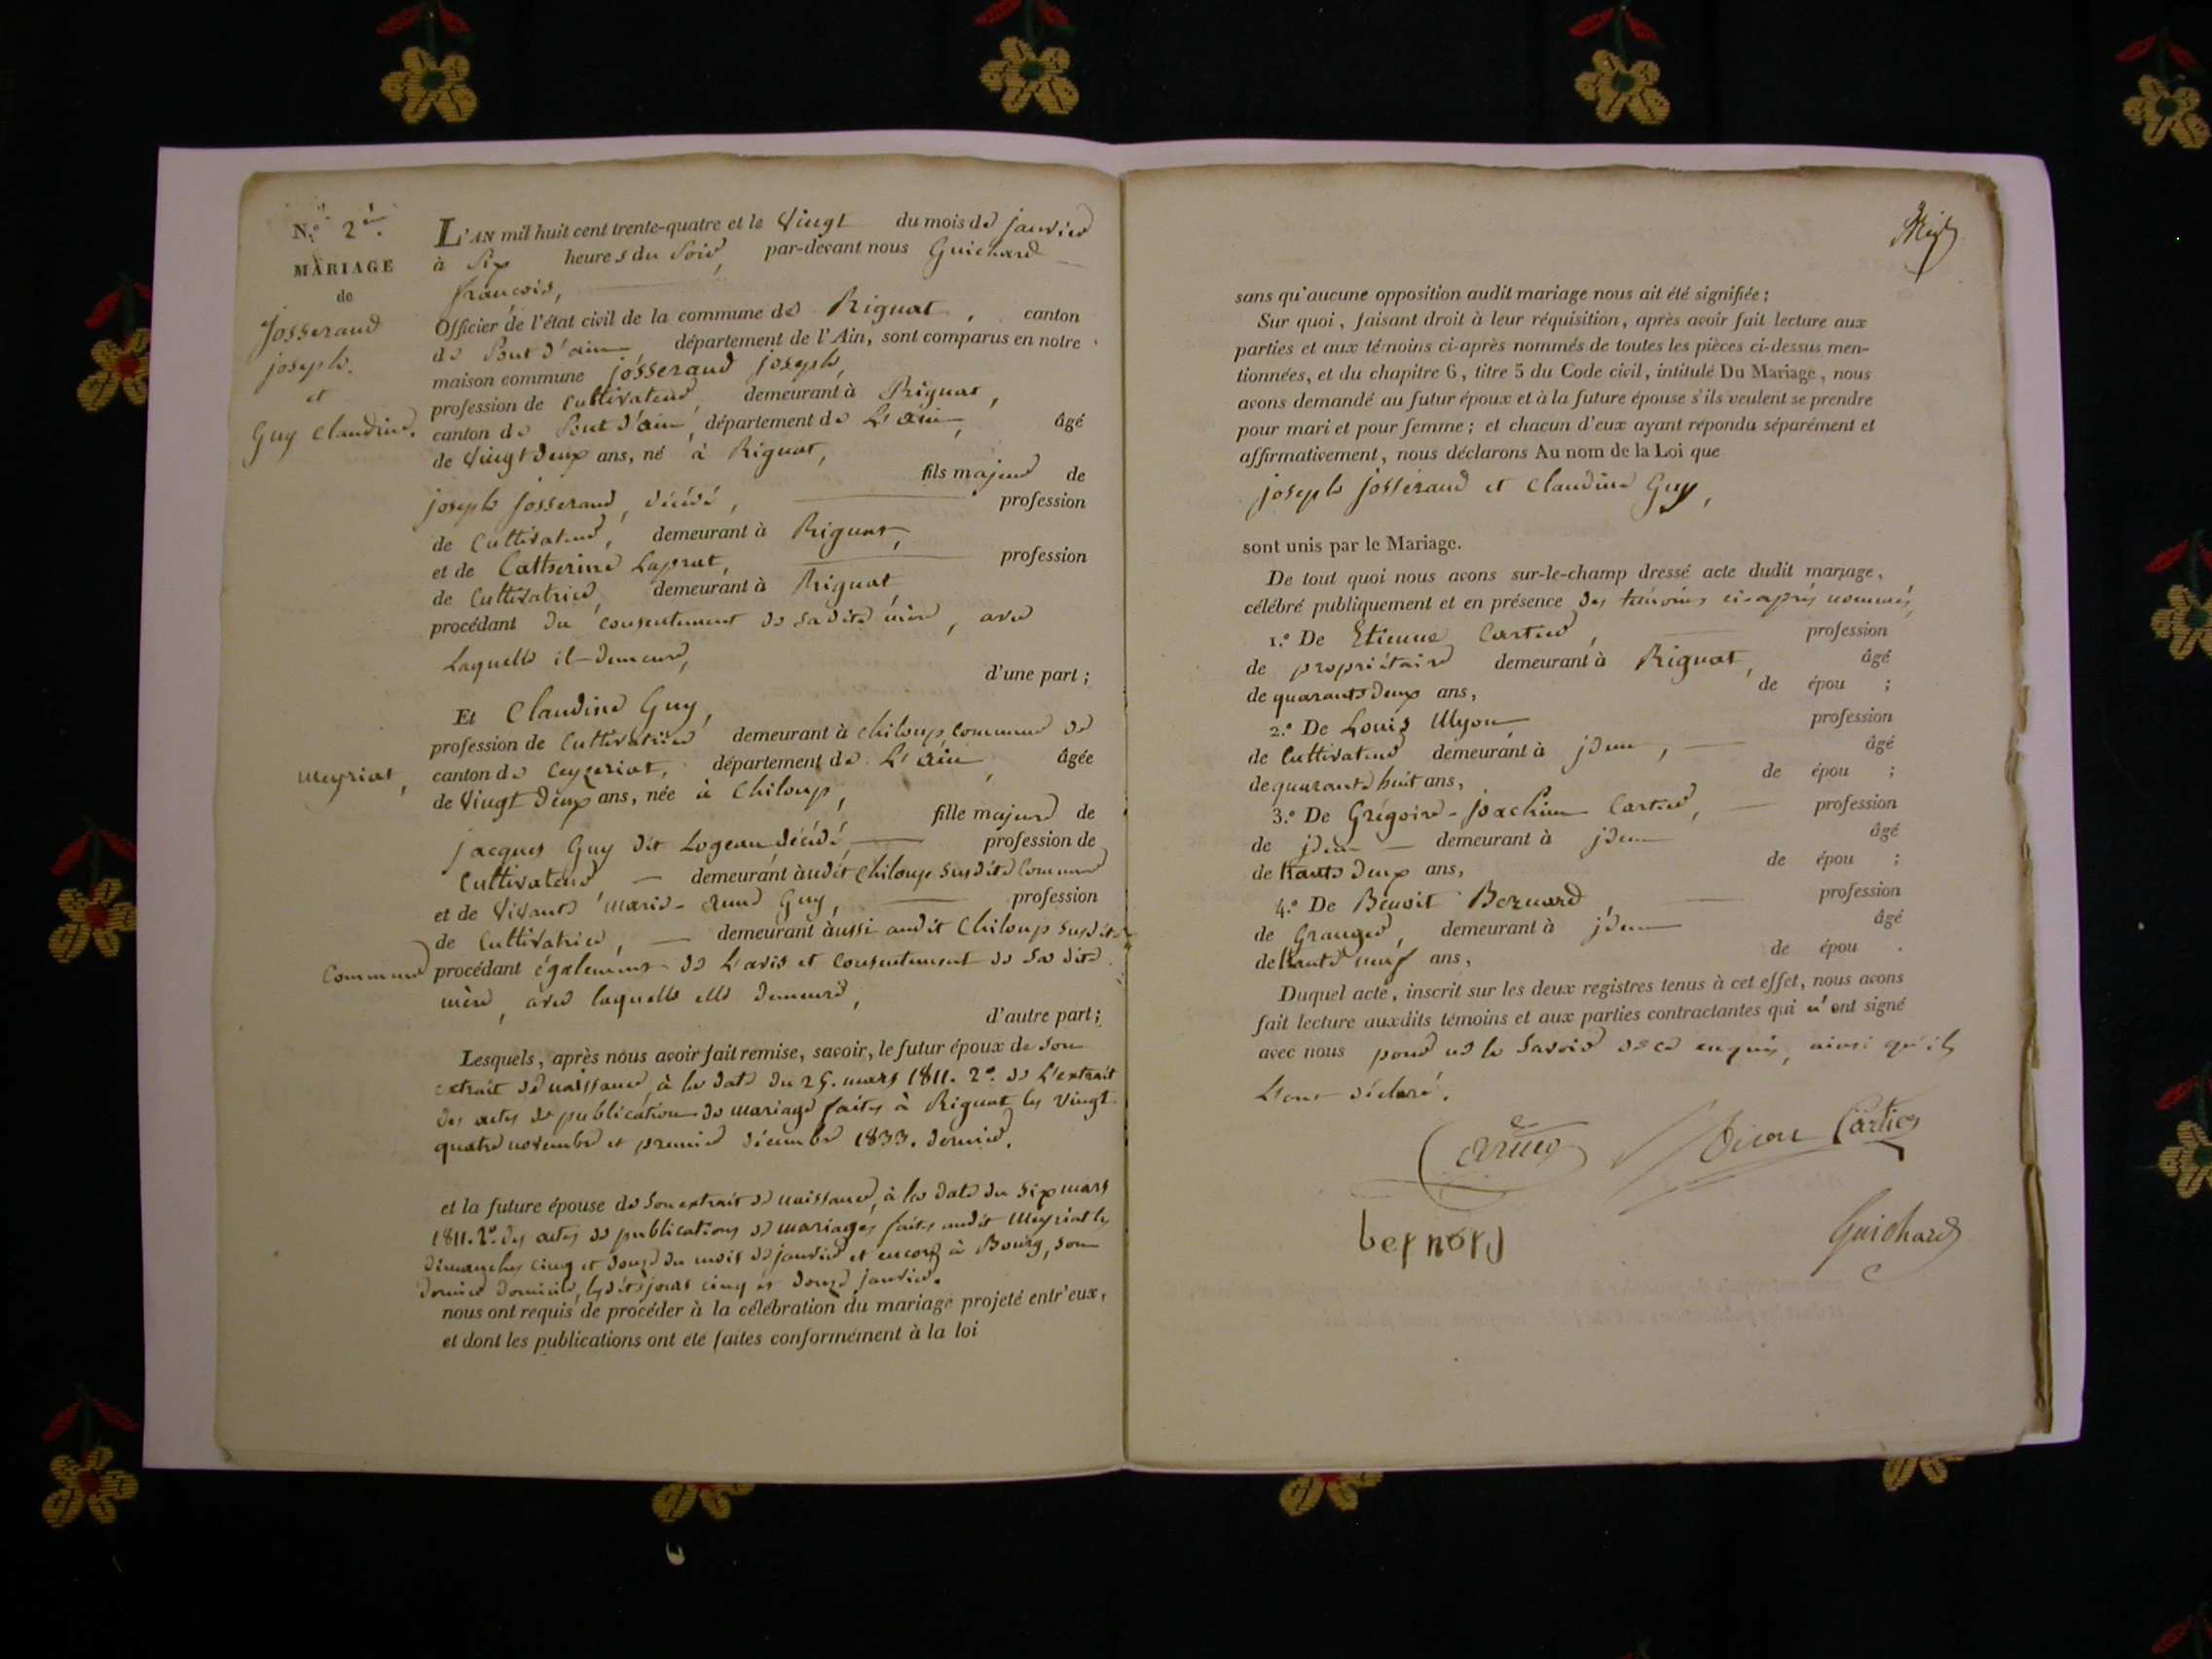 N.° 2è.
MARIAGE
de
Josserand
joseph.
et
Guy Claudine.
L'AN mil huit cent trente-quatre et le Vingt du mois de janvier
à Six heures du Soir, par-devant nous Guichard
françois,
Officier de l'état civil de la commune de Rignat, canton
de Pont d'ain département de l'Ain, sont comparus en notre
maison commune josserand joseph,
profession de Cultivateur, demeurant à Rignat,
canton de Pont d'ain, département de L'ain, âgé
de Vingt deux ans, né à Rignat,
fils majeur de
joseph josserand, décédé, profession
de Cultivateur, demeurant à Rignat,
et de Catherine Laprat, profession
de Cultivatrice, demeurant à Rignat,
procédant du consentement de sa dite mère, avec
Laquelle il demeure,
d'une part;
Et Claudine Guy,
profession de Cultivatrice demeurant à chiloup, commune de
Meyriat, canton de Ceyzeriat, département de L'ain, âgée
de Vingt deux ans, née à Chiloup,
fille majeure de
jacques Guy dit Logean, décédé, profession de
Cultivateur, demeurant audit Chiloup susdite Commune
et de Vivante marie-anne Guy, profession
de Cultivatrice, demeurant aussi audit Chiloup susdite
Commune procédant également de L'avis et consentement de sa dite
mère, avec laquelle elle demeure,
d'autre part;
Lesquels, après nous avoir fait remise, savoir, le futur époux de son
extrait de naissance, à la date du 25. mars 1811. 2°. de L'extrait
des actes de publication de mariage faites à Rignat les vingt
quatre novembre et premier décembre 1833. dernier.
et la future épouse de son extrait de naissance, à la date du six mars
1811. 2°. des actes de publications de mariages faites audit Meyriat les
dimanches cinq et douze du mois de janvier et encore à Bourg, son
dernier domicile, lesdits jours cinq et douze janvier.
nous ont requis de procéder à la célébration du mariage projeté entr'eux,
et dont les publications ont été faites conformément à la loi
sans qu'aucune opposition audit mariage nous ait été signifiée;
Sur quoi, faisant droit à leur réquisition, après avoir fait lecture aux
parties et aux témoins ci-après nommés de toutes les pièces ci-dessus men-
tionnées, et du chapitre 6, titre 5 du Code civil, intitulé Du Mariage, nous
avons demandé au futur époux et à la future épouse s'ils veulent se prendre
pour mari et pour femme; et chacun d'eux ayant répondu séparément et
affirmativement, nous déclarons Au nom de la Loi que
joseph josserand et Claudine Guy,
sont unis par le Mariage.
De tout quoi nous avons sur-le-champ dressé acte dudit mariage,
célébré publiquement et en présence des témoins ci-après nommés,
1.° De Etienne Cartier, profession
de propriétaire demeurant à Rignat, âgé
de quarante deux ans, de épou ;
2.° De Louis Myon profession
de Cultivateur demeurant à jdem, âgé
de quarante huit ans, de épou ;
3.° De Grégoire-joachim Cartier, profession
de jdem demeurant à jdem âgé
de trente deux ans, de épou ;
4.° De Benoit Bernard, profession
de Granger, demeurant à jdem âgé
de trente neuf ans, de épou .
Duquel acte, inscrit sur les deux registres tenus à cet effet, nous avons
fait lecture auxdits témoins et aux parties contractantes qui n'ont signé
avec nous pour ne le savoir de ce enquis, ainsi qu'ils
L'ont déclaré.
Cartier
bernard
Guichard